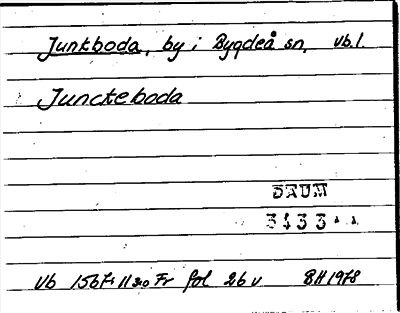 Junkboda, by i Bygdeå sn, vb.l.
Junckteboda
DAUM
3433
Vb 1567:11 a:o Fr fol 26 v BH 1978